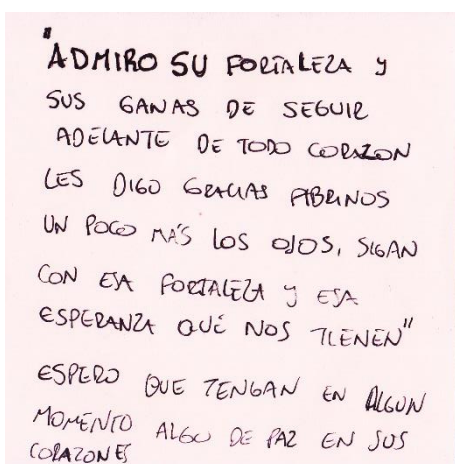 "ADMIRO SU FORTALEZA Y
SUS GANAS DE SEGUIR
ADELANTE DE TODO CORAZON
LES DIGO GRACIAS ABRINOS
UN POCO MÁS LOS OJOS, SIGAN
CON ESA FORTALEZA Y ESA
ESPERANZA QUÉ NOS TIENEN"
ESPERO QUE TENGAN EN ALGUN
MOMENTO ALGO DE PAZ EN SUS
CORAZONES